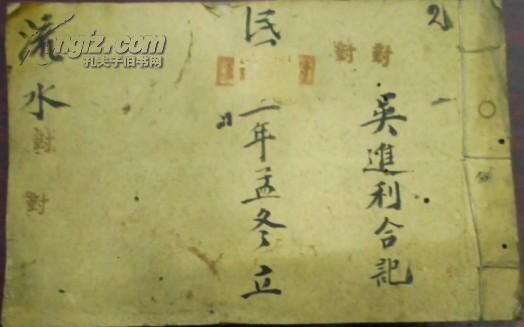 2
吳進利合記
民
二年孟冬立
流水
對
對
對
對
kongfz.com
孔夫子旧书网